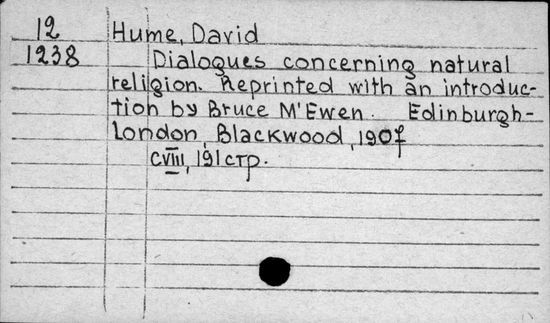 12 Hume, David
1238 Dialogues concerning natural
religion. Reprinted with an introduc-
tion by Bruce M'Ewen. Edinburgh-
London, Blackwood, 1907
CVIII, 191 стр.